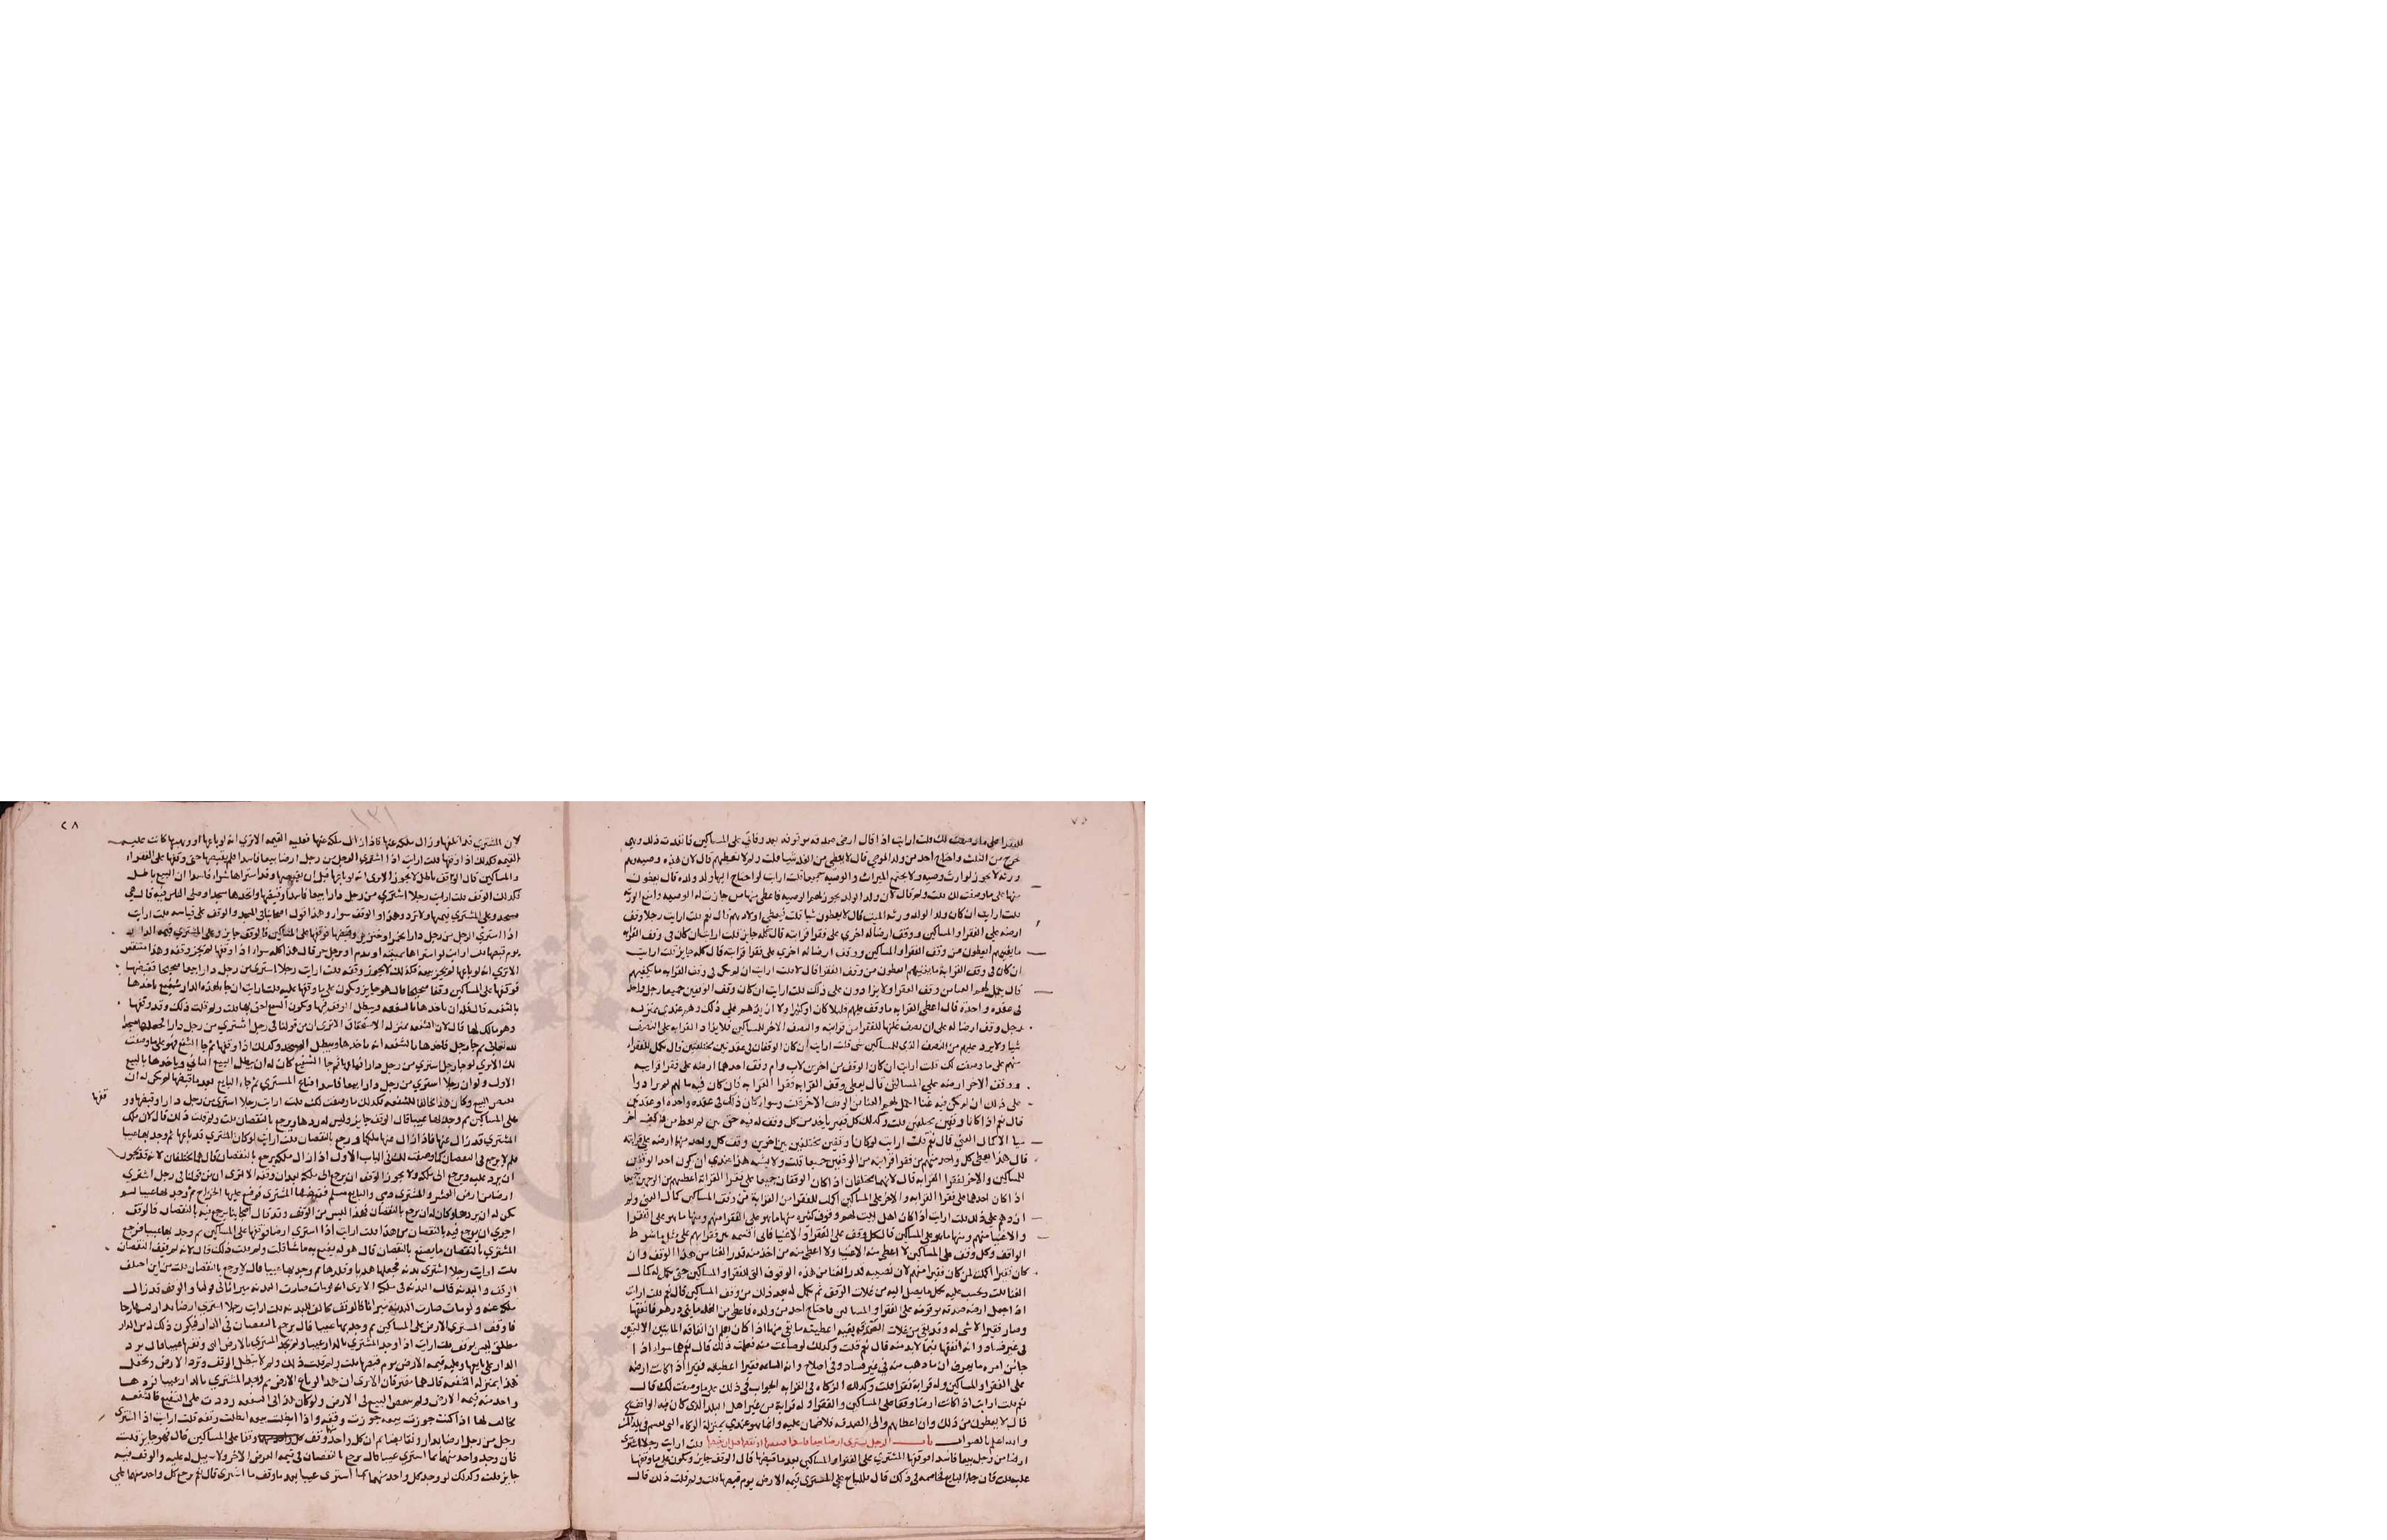 للفقراء على ما وصفت لك قلت ارايت اذا قال ارضي صدقه موقوفه بعد وفاتي على المساكين فانفدت ذلك وهي
تخرج من الثلث واحتاج احد من ولد الموصي قال لا يعطى من الغله شيا قلت ولم لا تعطيهم قال لان هذه وصيه وهم
ورثه لا يجوز لوارث وصيه ولا يجتمع الميراث والوصيه جميعا قلت ارايت لو احتاج ايها ولد ولده قال يعطون
منها على ما وصفت لك قلت ولم قال لان ولد الولد يجوز لهم الوصيه فاعطي منها من جازت له الوصيه وامنع الورثه
قلت ارايت ان كان ولد الولد ورثه الميت قال لا يعطون شيا قلت فيعطى اولادهم قال نعم قلت ارايت رجلا وقف
ارضه على الفقرا والمساكين ووقف ارضا له اخري على فقرا قرابته قال كله جايز قلت ارايت ان كان في وقف القرابه
ما يغنيهم ايعطون من وقف الفقرا والمساكين ووقف ارضا له اخري على فقرا قرابته قال كله جايز قلت ارايت
ان كان في وقف القرابة ما يغنيهم ايعطون من وقف الفقرا قال لا قلت ارايت ان لم يكن في وقف القرابه ما يكفيهم
قال يكمل لهم الغنا من وقف الفقرا ولا يزادون على ذلك قلت ارايت ان كان وقف الوقفين جميعا رجل واحد
في عقده واحدة قال اعطي القرابه ما وقف عليهم قليلا كان او كثيرا ولا ازيدهم على ذلك وهم عندي بمنزله
رجل وقف ارضا له على ان نصف غلتها للفقرا من قرابته والنصف الاخر للمساكين فلا يزاد القرابه على النصف
شيا ولا يرد عليهم من النصف الذي للمساكين شي قلت ارايت ان كان الوقفان في عقدتين مختلفتين قال يكمل للفقرا
منهم على ما وصفت لك قلت ارايت ان كان الوقف من اخوين لاب وام وقف احدهما ارضه على فقرا قرابته
ووقف الاخر ارضه على المساكين قال يعطى وقف القرابه فقرا القرابه فان كان فيه ما لهم لم يزادوا
على ذلك ان لم يكن فيه غنا اكمل لهم الغنا من الوقف الاخر قلت وسوا كان ذلك في عقده واحده او عقدتين
قال نعم اذا كانا وقفين مختلفين قلت وكذلك كل فقير ياخذ من كل وقف له فيه حق
شيا الا كمال الغني قال نعم قلت ارايت لو كان وقفين مختلفين بين اخوين وقف كل واحد منهما ارضه على قرابته
قال هذا يعطى كل واحد منهم من فقرا قرابته من الوقفين جميعا قلت ولا يشبه هذا عندي ان يكون احد الوقفين
للمساكين والاخر لفقرا القرابه قال لا انهما مختلفان اذا كان الوقفان جميعا على فقرا القرابة اعطيهم من الوجهين جميعا
اذا كان احدهما على فقرا القرابه والاخر على المساكين اكملت للفقرا من القرابة من وقف المساكين كمال الغني ولم
ازدهم على ذلك قلت ارايت اذا كان اهل البيت لهم وقوف كثيره منها ما هو على الفقرا منهم ومنها ما هو على الفقرا
والاغنيا منهم ومنها ما هو على المساكين قال كل وقف على الفقرا والاغنيا فاني اقسمه بين قرابتهم على مثل ما شرط
الواقف وكل وقف على المساكين لا اعطي منه الاغنيا ولا اعطي منه من اخذ منه قدر الغنا من هذا الوقف وان
كان فقيرا اكملت لمن كان فقيرا منهم لان نصيبه قدر الغنا من هذه الوقوف التي للفقرا والمساكين حتى يكمل له كمال
الغنا قلت ويحسب عليه بكل ما يصل اليه من غلات الوقف ثم يكمل له بعد ذلك من وقف المساكين قال نعم قلت ارايت
اذا جعل ارضه صدقه موقوفه على الفقرا والمساكين فاحتاج احد من ولده فاعطي من الغله مايتي درهم فانفقها
وصار فقيرا لا شي له وقد بقي من غلات الصدقه بقيه اعطيته ما بقي منها اذا كان يعلم ان انفاقه المايتين الاولتين
في غير فساد وانه انفقها فيما لا بد منه قال نعم قلت وكذلك لو ضاعت منه فعلت ذلك قال نعم هما سوا اذا
جائز امره ما يعرف ان ما ذهب منه في غير فساد وفي اصلاح وانه الساعه فقيرا اعطيته فقيرا اذا كانت ارضه
على الفقرا والمساكين وله قرابة فقرا قلت وكذلك الزكاه في القرابه الجواب في ذلك على ما وصفت لك قال
نعم قلت ارايت اذا كانت ارضا وقفا على المساكين والفقرا وله قرابة من غير اهل البلد الذي كان فيه الواقف
قال لا يعطون من ذلك وان اعطاهم والي الصدقه فلا ضمان عليه وانما هو عندي بمنزلة الزكاه التي يقسم في بلد المال
والله اعلم بالصواب باب الرجل يشتري ارضا بيعا فاسدا فيقفها او يقفها قبل ان يقبضها قلت ارايت رجلا اشتري
ارضا من رجل بيعا فاسدا فوقفها المشتري على الفقرا والمساكين بعد ما قبضها قال الوقف جايز وتكون على ما وقفها
عليه قلت فان جا البايع فخاصمه في ذلك قال فللبايع على المشتري قيمه الارض يوم قبضها قلت ولم قلت ذلك قال
لان المشتري قد اتلفها وزال ملكه عنها فاذا زال ملكه عنها فعليه القيمه الا تري انه لو باعها او وهبها كانت عليه
القيمه فكذلك اذا وقفها قلت ارايت اذا اشتري الرجل من رجل ارضا بيعا فاسدا فلم يقبضها حتى وقفها على الفقراء
والمساكين قال الوقف باطل لا يجوز الا تري انه لو باعها قبل ان يقبضها وقد اشتراها شراء فاسدا ان البيع باطل
فكذلك الوقف قلت ارايت رجلا اشتري من رجل دارا بيعا فاسدا وقبضها واتخذها مسجدا وصلى الناس فيه قال هي
مسجد وعلى المشتري قيمتها ولا ترد وهذا والوقف سوا وهذا قول اصحابنا في المسجد والوقف على قياسه قلت ارايت
اذا اشتري الرجل من رجل دارا بخمر او خنزير وقبضها فوقفها على المساكين قال الوقف جايز وعلى المشتري قيمه الدار
يوم قبضها قلت ارايت لو اشتراها بميته او بدم او برجل حر قال هذا كله سوا اذا وقفها لم يجز وقفه وهذا منتقض
الا تري انه لو باعها لم يجز بيعه فكذلك لا يجوز وقفه قلت ارايت رجلا اشتري من رجل دارا بيعا صحيحا فقبضها
فوقفها على المساكين وقفا صحيحا قال هو جايز وتكون على ما وقفها عليه قلت ارايت ان جا لهذه الدار شفيع ياخذها
بالشفعه قال فله ان ياخذها بالشفعه ويبطل الوقف فيها ويكون الشفيع احق بها قلت ولم قلت ذلك وقد وقفها
وهو مالك لها قال لان الشفعه بمنزله الاستحقاق الا تري ان من قولنا في رجل اشتري من رجل دارا فجعلها مسجدا
لله تعالى ثم جا رجل فاخذها بالشفعه انه ياخذها ويبطل المسجد وكذلك اذا وقفها ثم جا الشفيع فهو على ما وصفت
لك الا تري لو جا رجل اشتري من رجل دارا فباعها ثم جا الشفيع كان له ان يبطل البيع الثاني وياخذها بالبيع
الاول ولو ان رجلا اشتري من رجل دارا بيعا فاسدا فباع المشتري ثم جاء البايع بعد ما قبضها لم يكن له ان
ينقض البيع وكان هذا مخالفا للشفعه فكذلك ما وصفت لك قلت ارايت رجلا اشتري من رجل دارا وقبضها وو
قفها
على المساكين ثم وجد بها عيبا قال الوقف جايز وليس له ردها ويرجع بالنقصان قلت ولم قلت ذلك قال لان ملك
المشتري قد زال عنها فاذا زال عنها ملكها ورجع بالنقصان قلت ارايت لو كان المشتري قد باعها ثم وجد بها عيبا
فلم لا يرجع في النقصان كما وصفت لك في الباب الاول اذا زال ملكه يرجع بالنقصان قال هما مختلفان لانه قد يجوز
ان يرد عليه ويرجع الى ملكه ولا يجوز الوقف ان يرجع الى ملكه بعد ان وقفه الا تري ان من قولنا في رجل اشتري
ارضا من ارض العشر والمشتري ذمي والبايع مسلم فقبضها المشتري فوضع عليها الخراج ثم وجد بها عيبا لم
يكن له ان يردها وكان له ان يرجع بالنقصان فهذا ليس من الوقف وقد قال اصحابنا يرجع فيه بالنقصان فالوقف
احري ان يرجع فيه بالنقصان من هذا قلت ارايت اذا اشتري ارضا فوقفها على المساكين ثم وجد بها عيبا فرجع
المشتري بالنقصان ما يصنع بالنقصان قال هو له يصنع به ما شا قلت ولم قلت ذلك قال لانه لم يقف النقصان
قلت ارايت رجلا اشتري بدنه فجعلها هديا وقلدها ثم وجد بها عيبا قال لا يرجع بالنقصان قلت من اين اختلف
الوقف والبدنه قال البدنه في ملكه الا تري انه لو مات صارت البدنه ميراثا في قولنا والوقف قد زال
ملكه عنه ولو مات صارت البدنة ميراثا فالوقف مخالف للبدنه قلت ارايت رجلا اشتري ارضا بدار
فاوقف المشتري الارض على المساكين ثم وجد بها عيبا قال يرجع بالنقصان في الدار فيكون ذلك له من الدار
مطلق ليس بوقف قلت ارايت اذا وجد المشتري بالدار عيبا ولم يجد المشتري بالارض التي وقفها عيبا قال يرد
الدار على بايعها وعليه قيمه الارض يوم قبضها قلت ولم قلت ذلك ولم لا يبطل الوقف وترد الارض وتجعل
هذا بمنزله الشفعه قال هما مفترقان الا تري ان هذا لو باع الارض ثم وجد المشتري بالدار عيبا لردها
واخذ منه قيمه الارض ولم ينقض البيع في الارض ولو كان هذا في الشفعه رددت على الشفيع فالشفعه
تخالف لها اذا كنت جوزت بيعه جوزت وقفه واذا ابطلت بيعه ابطلت وقفه قلت ارايت اذا اشتري
رجل من رجل ارضا بدار وتقابضا ثم ان كل واحد وقف وقفا على المساكين قال فهو جايز قلت
فان وجد واحد منهما بما اشتري عيبا قال يرجع بالنقصان في قيمه العرض الاخر ولا سبيل له عليه والوقف فيه
جايز قلت وكذلك لو وجد كل واحد منهما بما اشتري عيبا بعد ما وقف ما اشتري قال نعم يرجع كل واحد منهما على